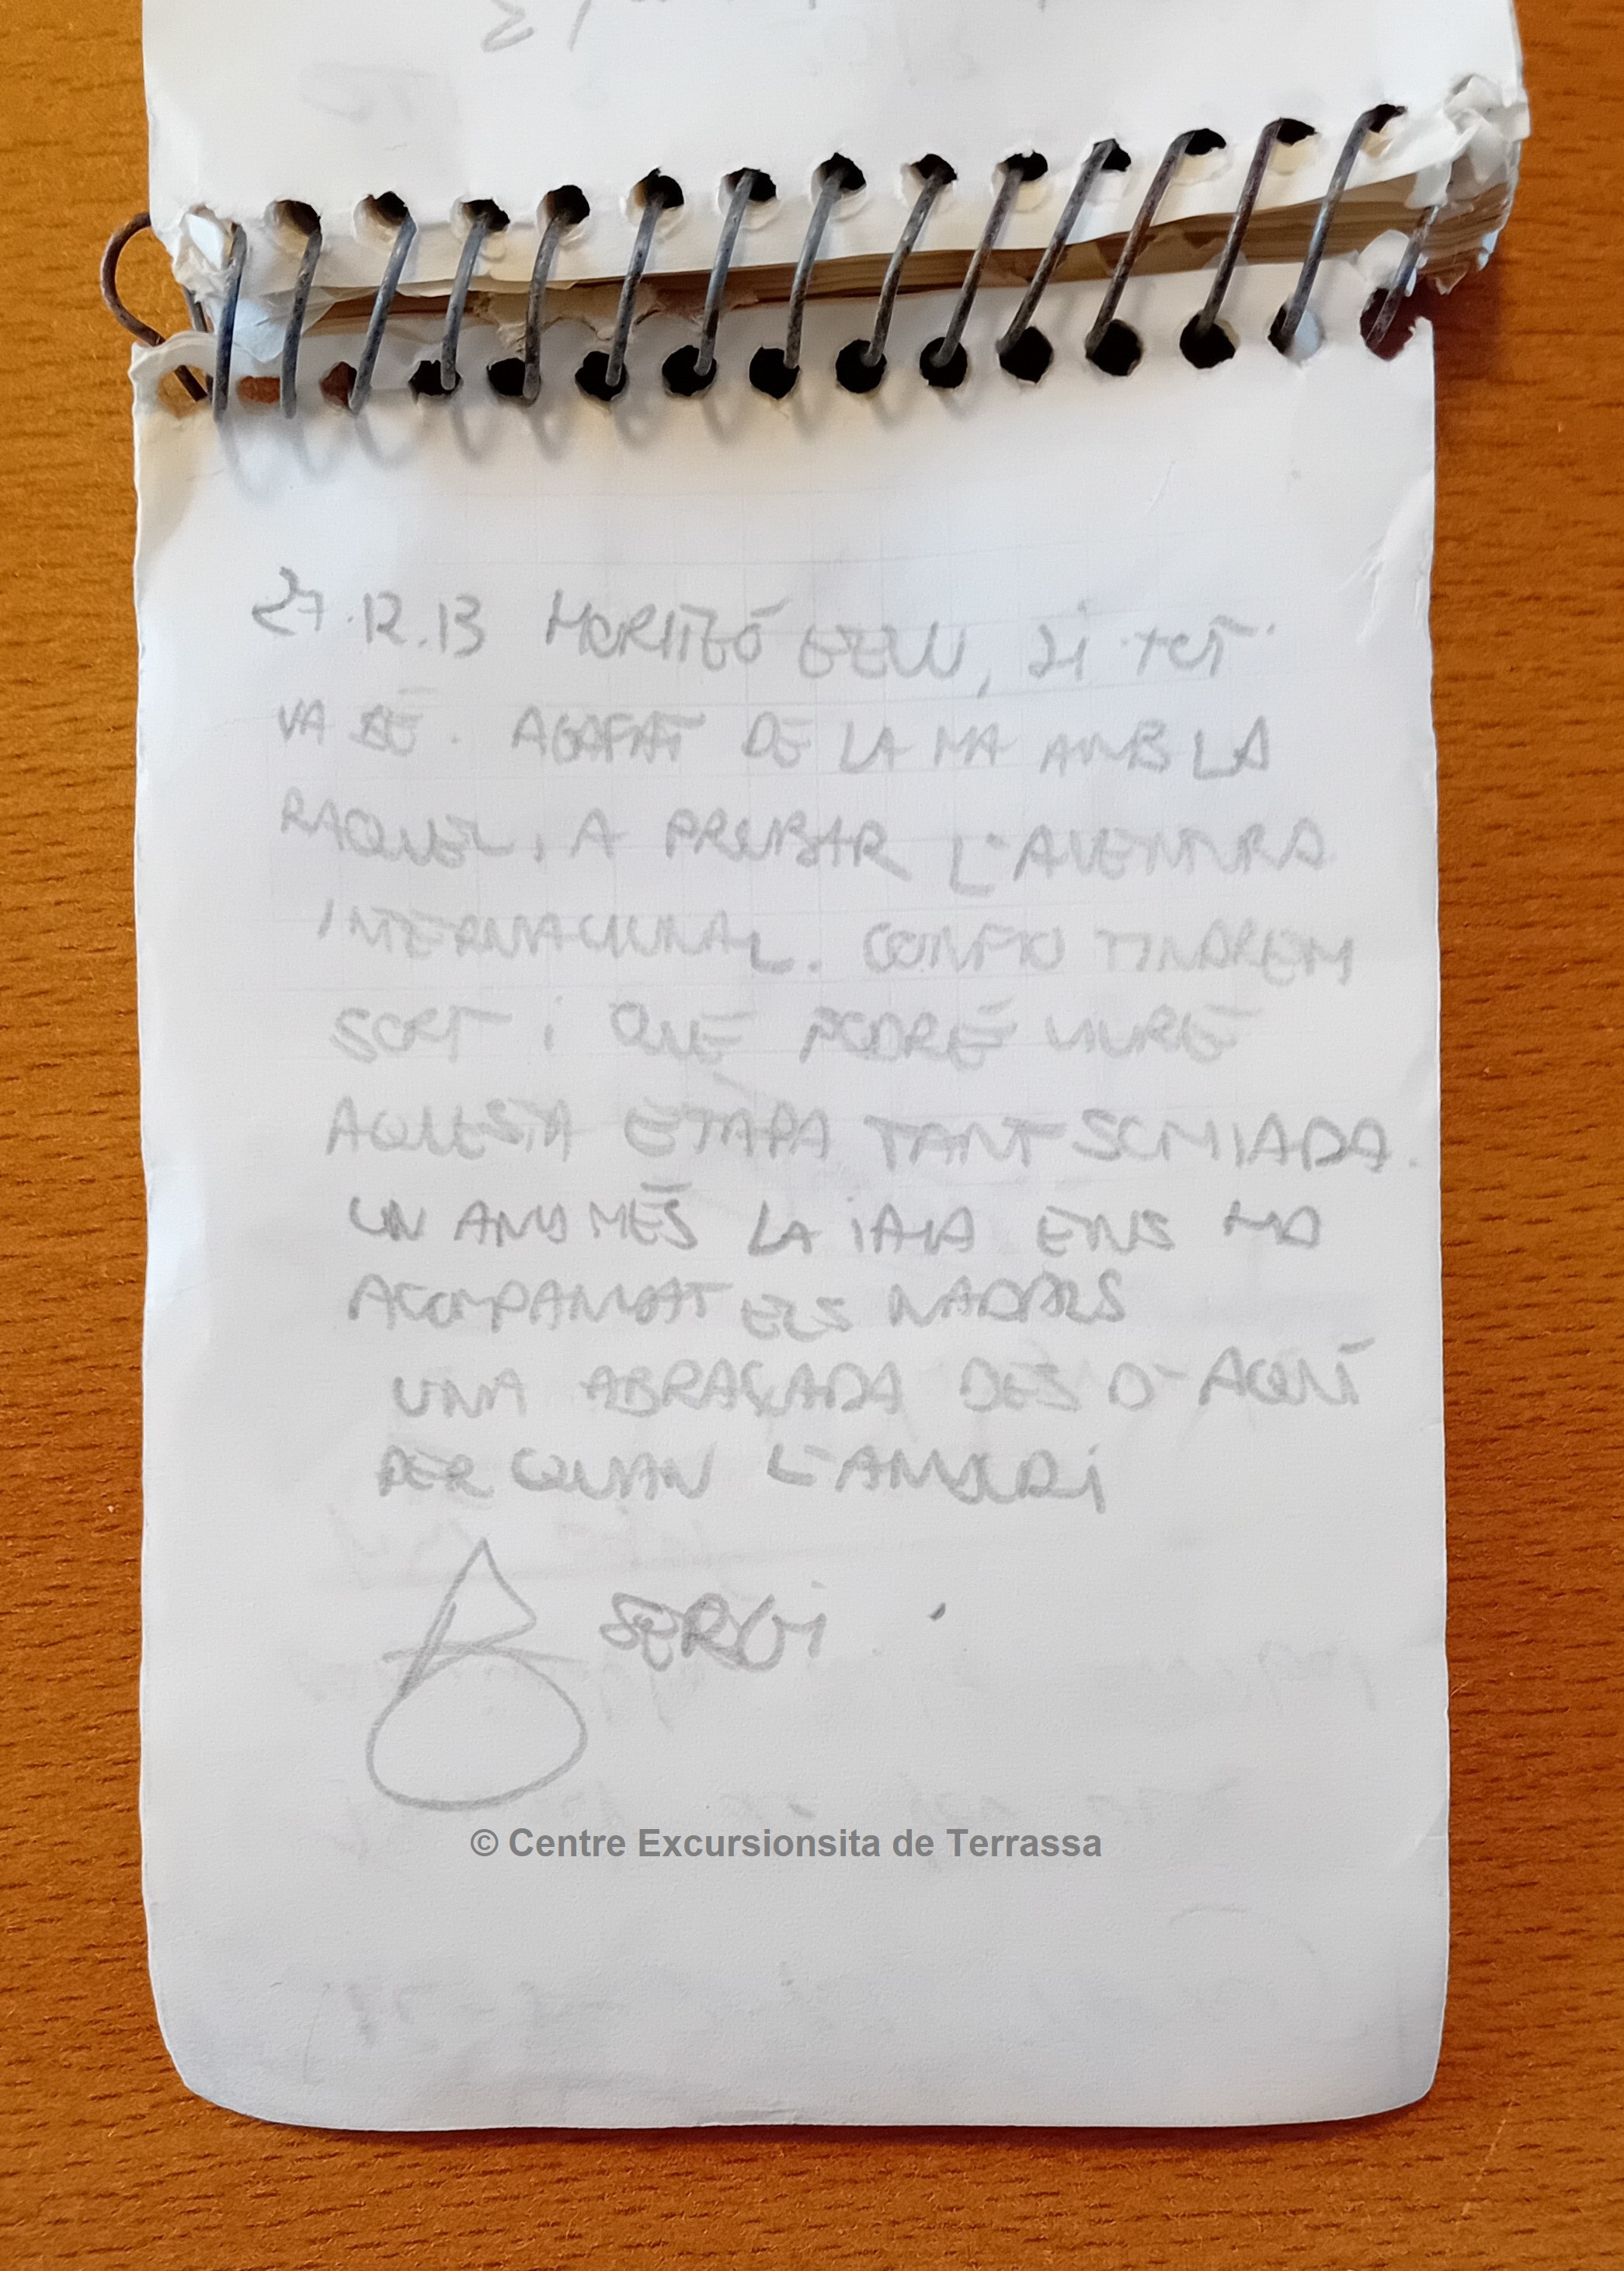 27.12.13 MORITZÓ ESEU, SI TOT
VA BÉ. AGAFAT DE LA MA AMB LA
RAQUEL, A PROBAR L'AVENTURA
INTERNACIONAL. CONFIO TINDREM
SORT i QUE PODRÉ VIURE
AQUESTA ETAPA TANT SOMIADA.
UN ANY MÉS LA iAiA ENS HA
ACOMPANYAT ELS NADALS
UNA ABRAÇADA DES D'AQUÍ
PER QUAN L'ANYORi
SERGi
© Centre Excursionsita de Terrassa